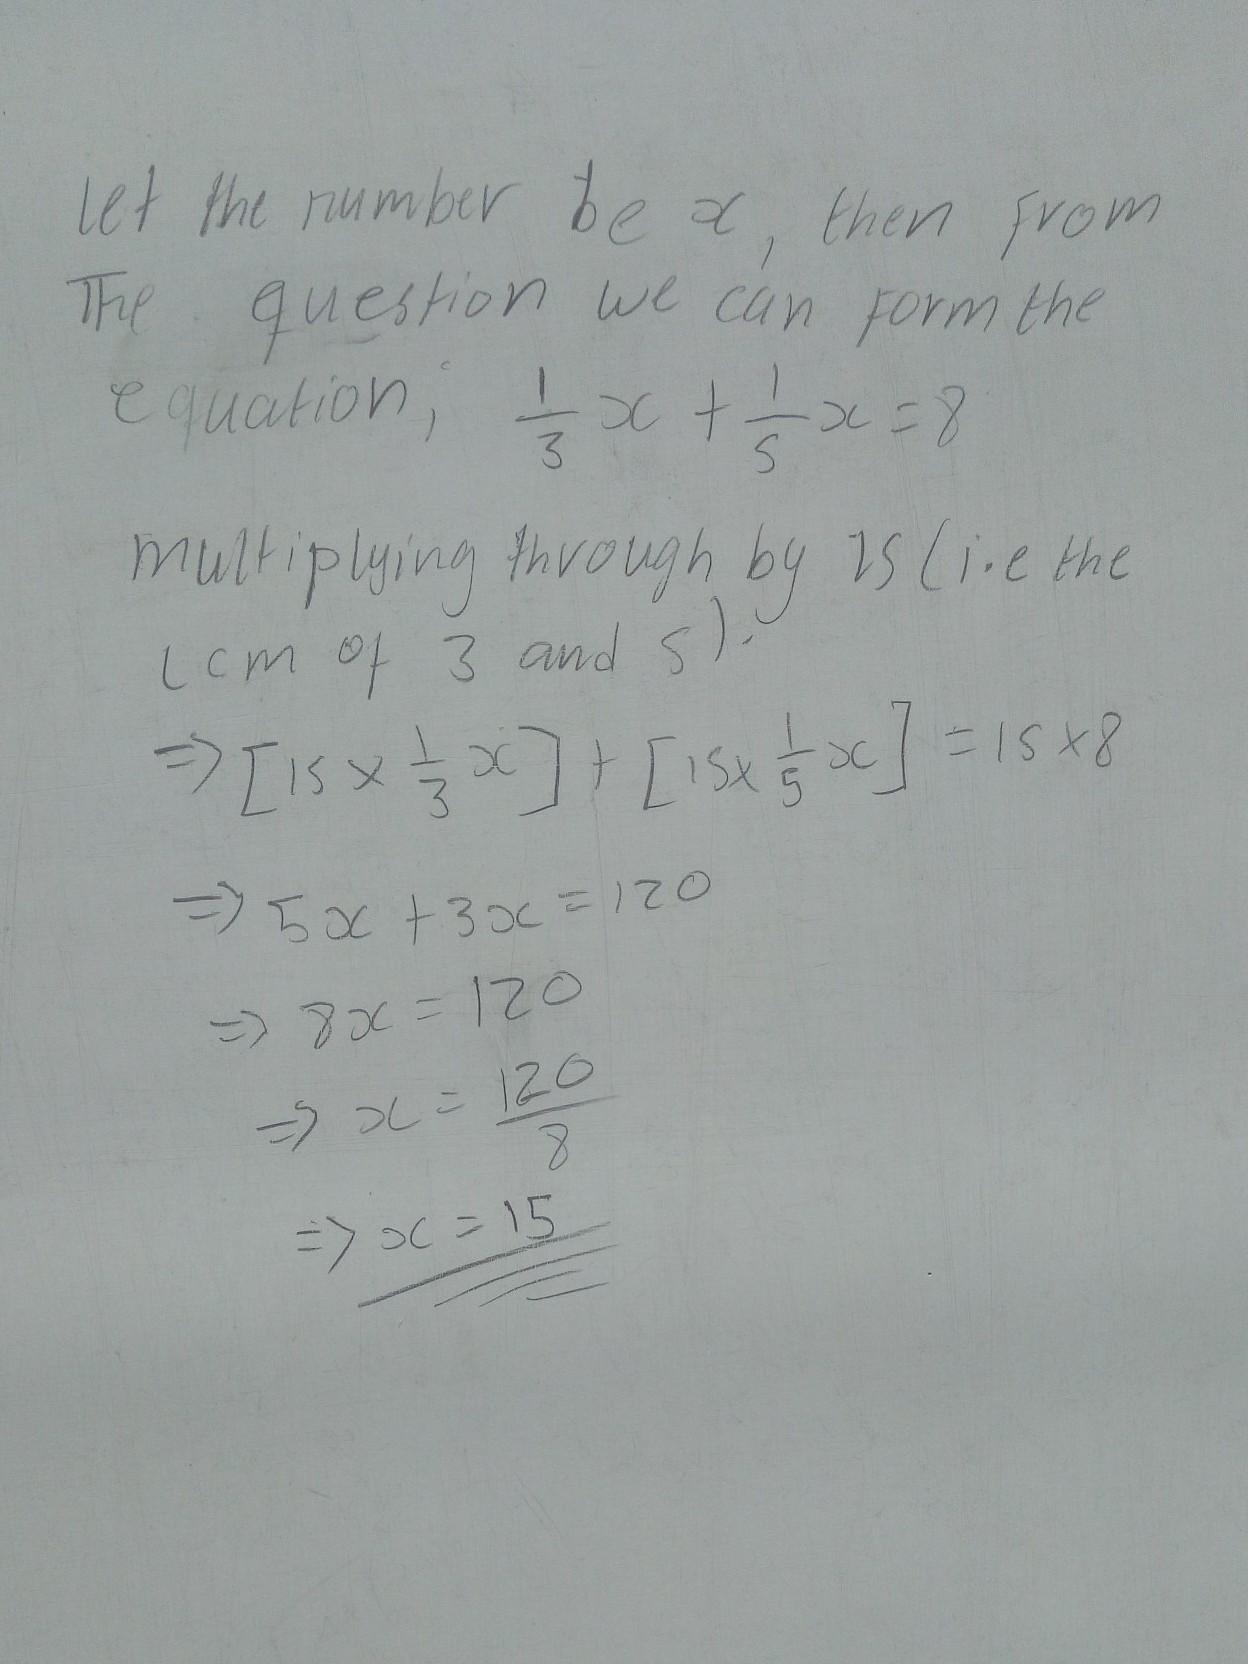 Let the number be x, then from
The question we can form the
equation; 1/3 x + 1/5 x = 8
multiplying through by 15 (i.e the
LCM of 3 and 5).
⇒ [15 × 1/3 x] + [15 × 1/5 x] = 15 × 8
⇒ 5x + 3x = 120
⇒ 8x = 120
⇒ x = 120/8
⇒ x = 15